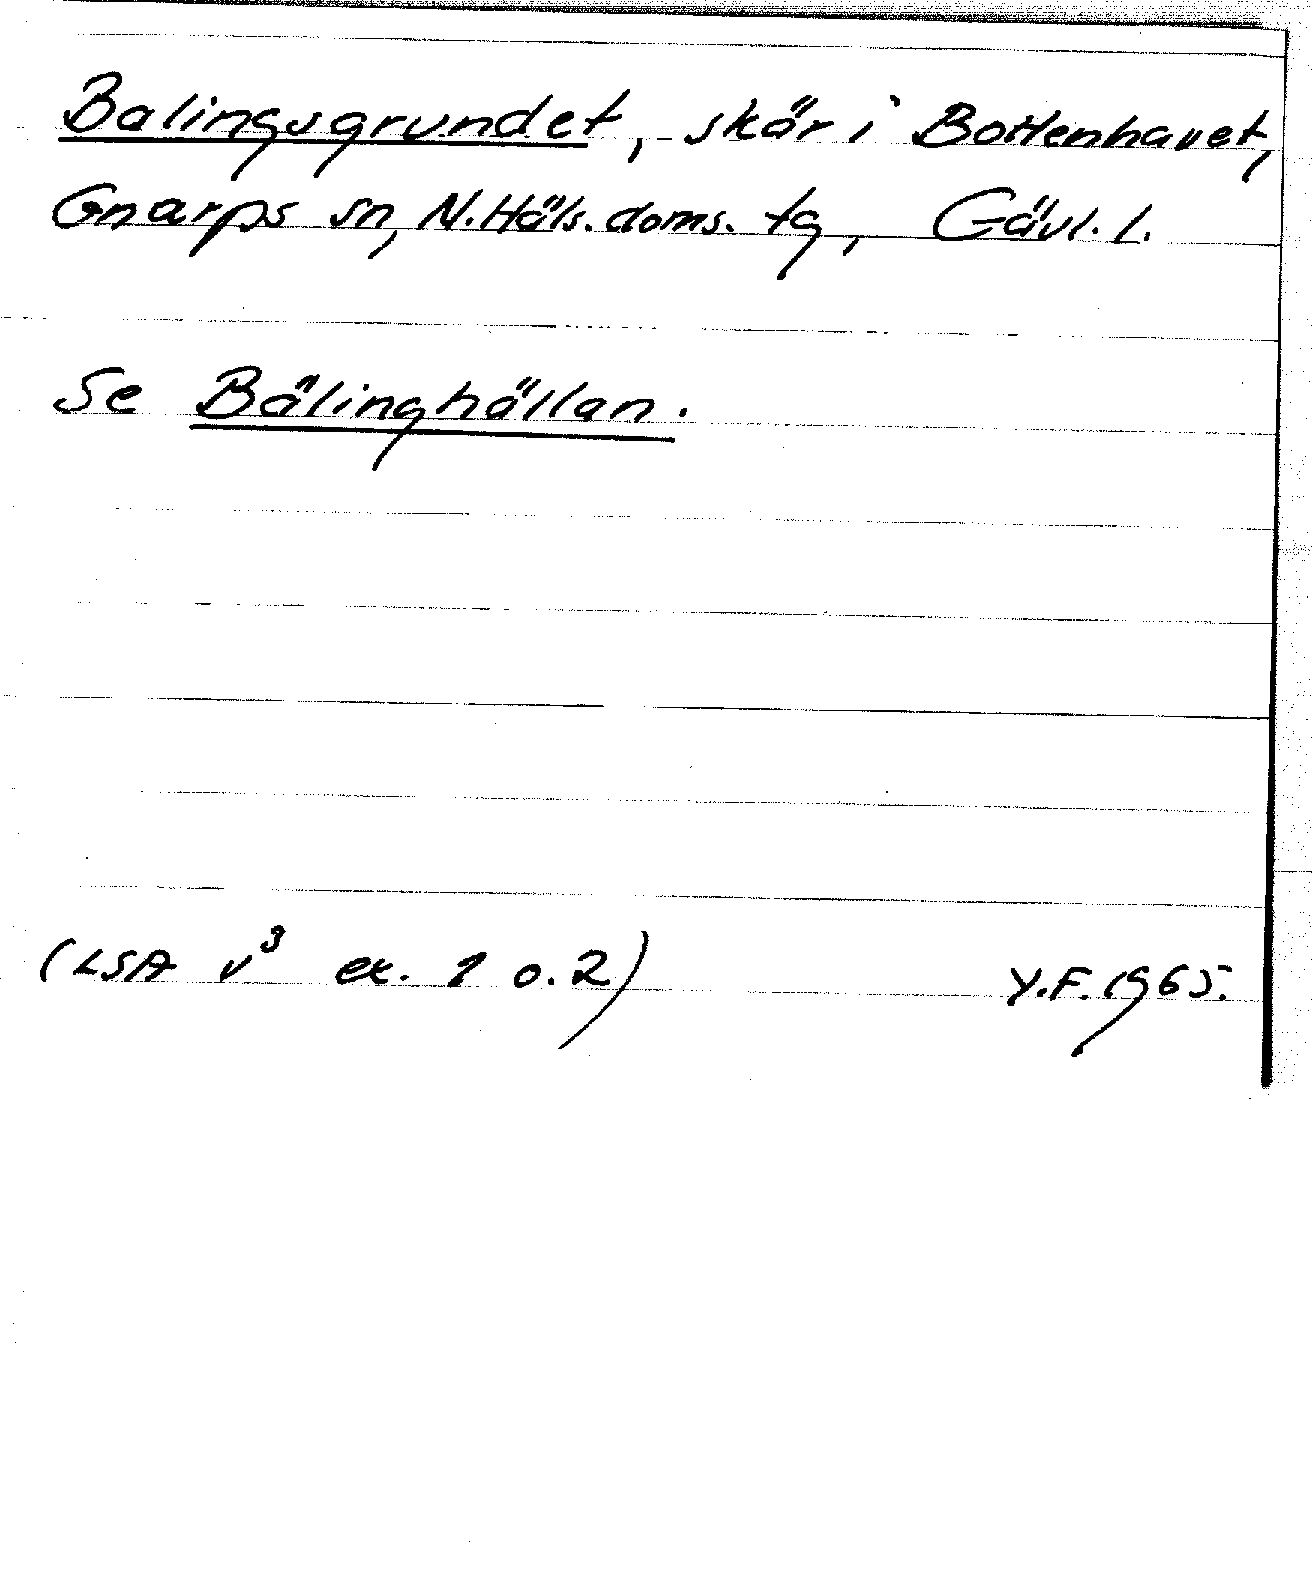 Balingsgrundet, skär i Bottenhavet,
Gnarps sn, N. Häls. doms. tg, Gävl. l.
Se Bälinghällan.
(LSA v³ ex. 1 o. 2) Y.F. 1965.